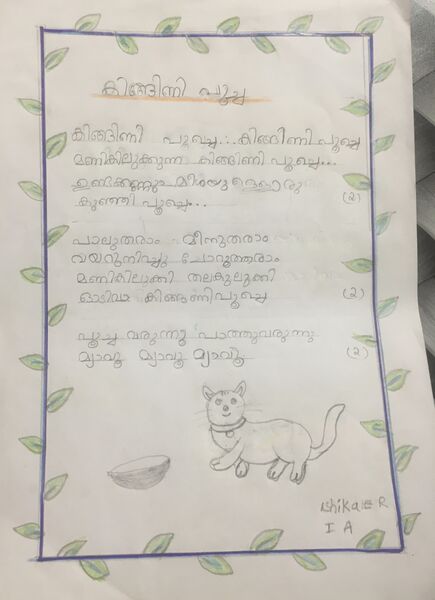 കിങ്ങിണി പൂച്ച
കിങ്ങിണി പൂച്ചെ...കിങ്ങിണി പൂച്ചെ
മണികിലുക്കുന്ന കിങ്ങിണി പൂച്ചെ...
ഉണ്ടക്കണ്ണും മീശയു മുള്ളൊരു
കുഞ്ഞി പൂച്ചെ... (2)
പാലുതരാം മീനുതരാം
വയറുനിറച്ചു ചോറുതരാം
മണികിലുക്കി തലകുലുക്കി
ഓടിവാ കിങ്ങിണിപൂച്ചെ (2)
പൂച്ച വരുന്നു പാത്തുവരുന്നു
മ്യാവൂ മ്യാവൂ മ്യാവൂ (2)
ishika E R
I A